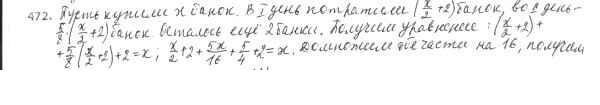 472. Пусть купили x банок. В I день потратили (x/2 + 2) банок, во II день -
5/8 (x/2 + 2) банок. Осталось ещё 2 банки. Получим уравнение: (x/2 + 2) +
+ 5/8 (x/2 + 2) + 2 = x; x/2 + 2 + 5x/16 + 5/4 + 2 = x. Домножим обе части на 16, получим